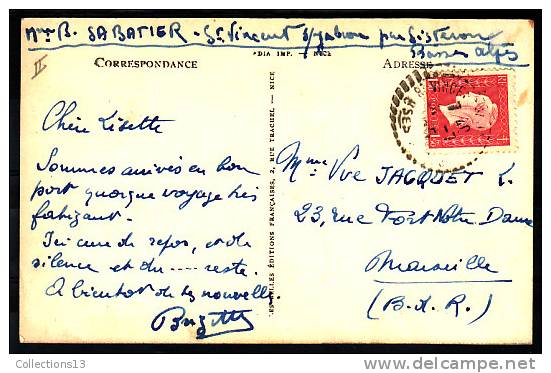 B. SABATIER - St Vincent s/Jabron par Sisteron
Basses Alpes
II
CORRESPONDANCE
NICE
ADRESSE
Chère Lisette
Sommes arrivés en bon
port quoique voyage très
fatigant.
Ici cure de repos, et de
silence et du .... reste.
A bientôt de tes nouvelles.
Brigitte
ÉDITIONS FRANÇAISES, 2, RUE TRACHEL — NICE
Mme Vve JACQUET L.
23, rue Fort Notre Dame
Marseille
(B.d.R.)
Collections13
www.delcampe.net